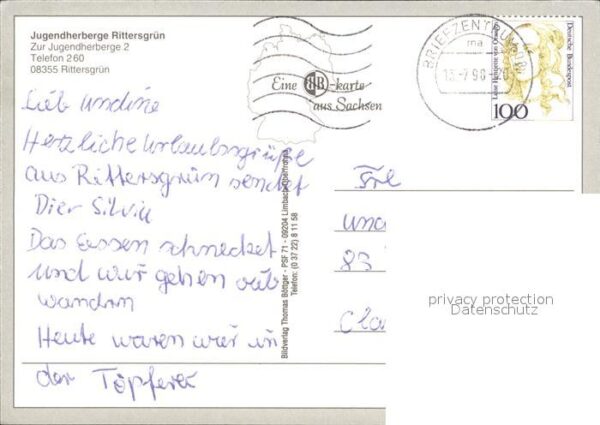 Jugendherberge Rittersgrün
Zur Jugendherberge 2
Telefon 2 60
08355 Rittersgrün
Eine BB-karte
aus Sachsen
BRIEFZENTRUM 08
ma
Deutsche Bundespost
Luise Henriette von Oranien
100
Lieb Undine
Herzliche Urlaubsgrüße
aus Rittersgrün sendet
Dier Silvia
Das Essen schmecket
und wir gehen oub
wandrn
Heute waren wir in
der Töpferei
Bildverlag Thomas Böttger - PSF 71 - 09204 Limbach-Oberfrohna
Telefon: (0 37 22) 8 11 58
Fre
und
Cla
privacy protection
Datenschutz